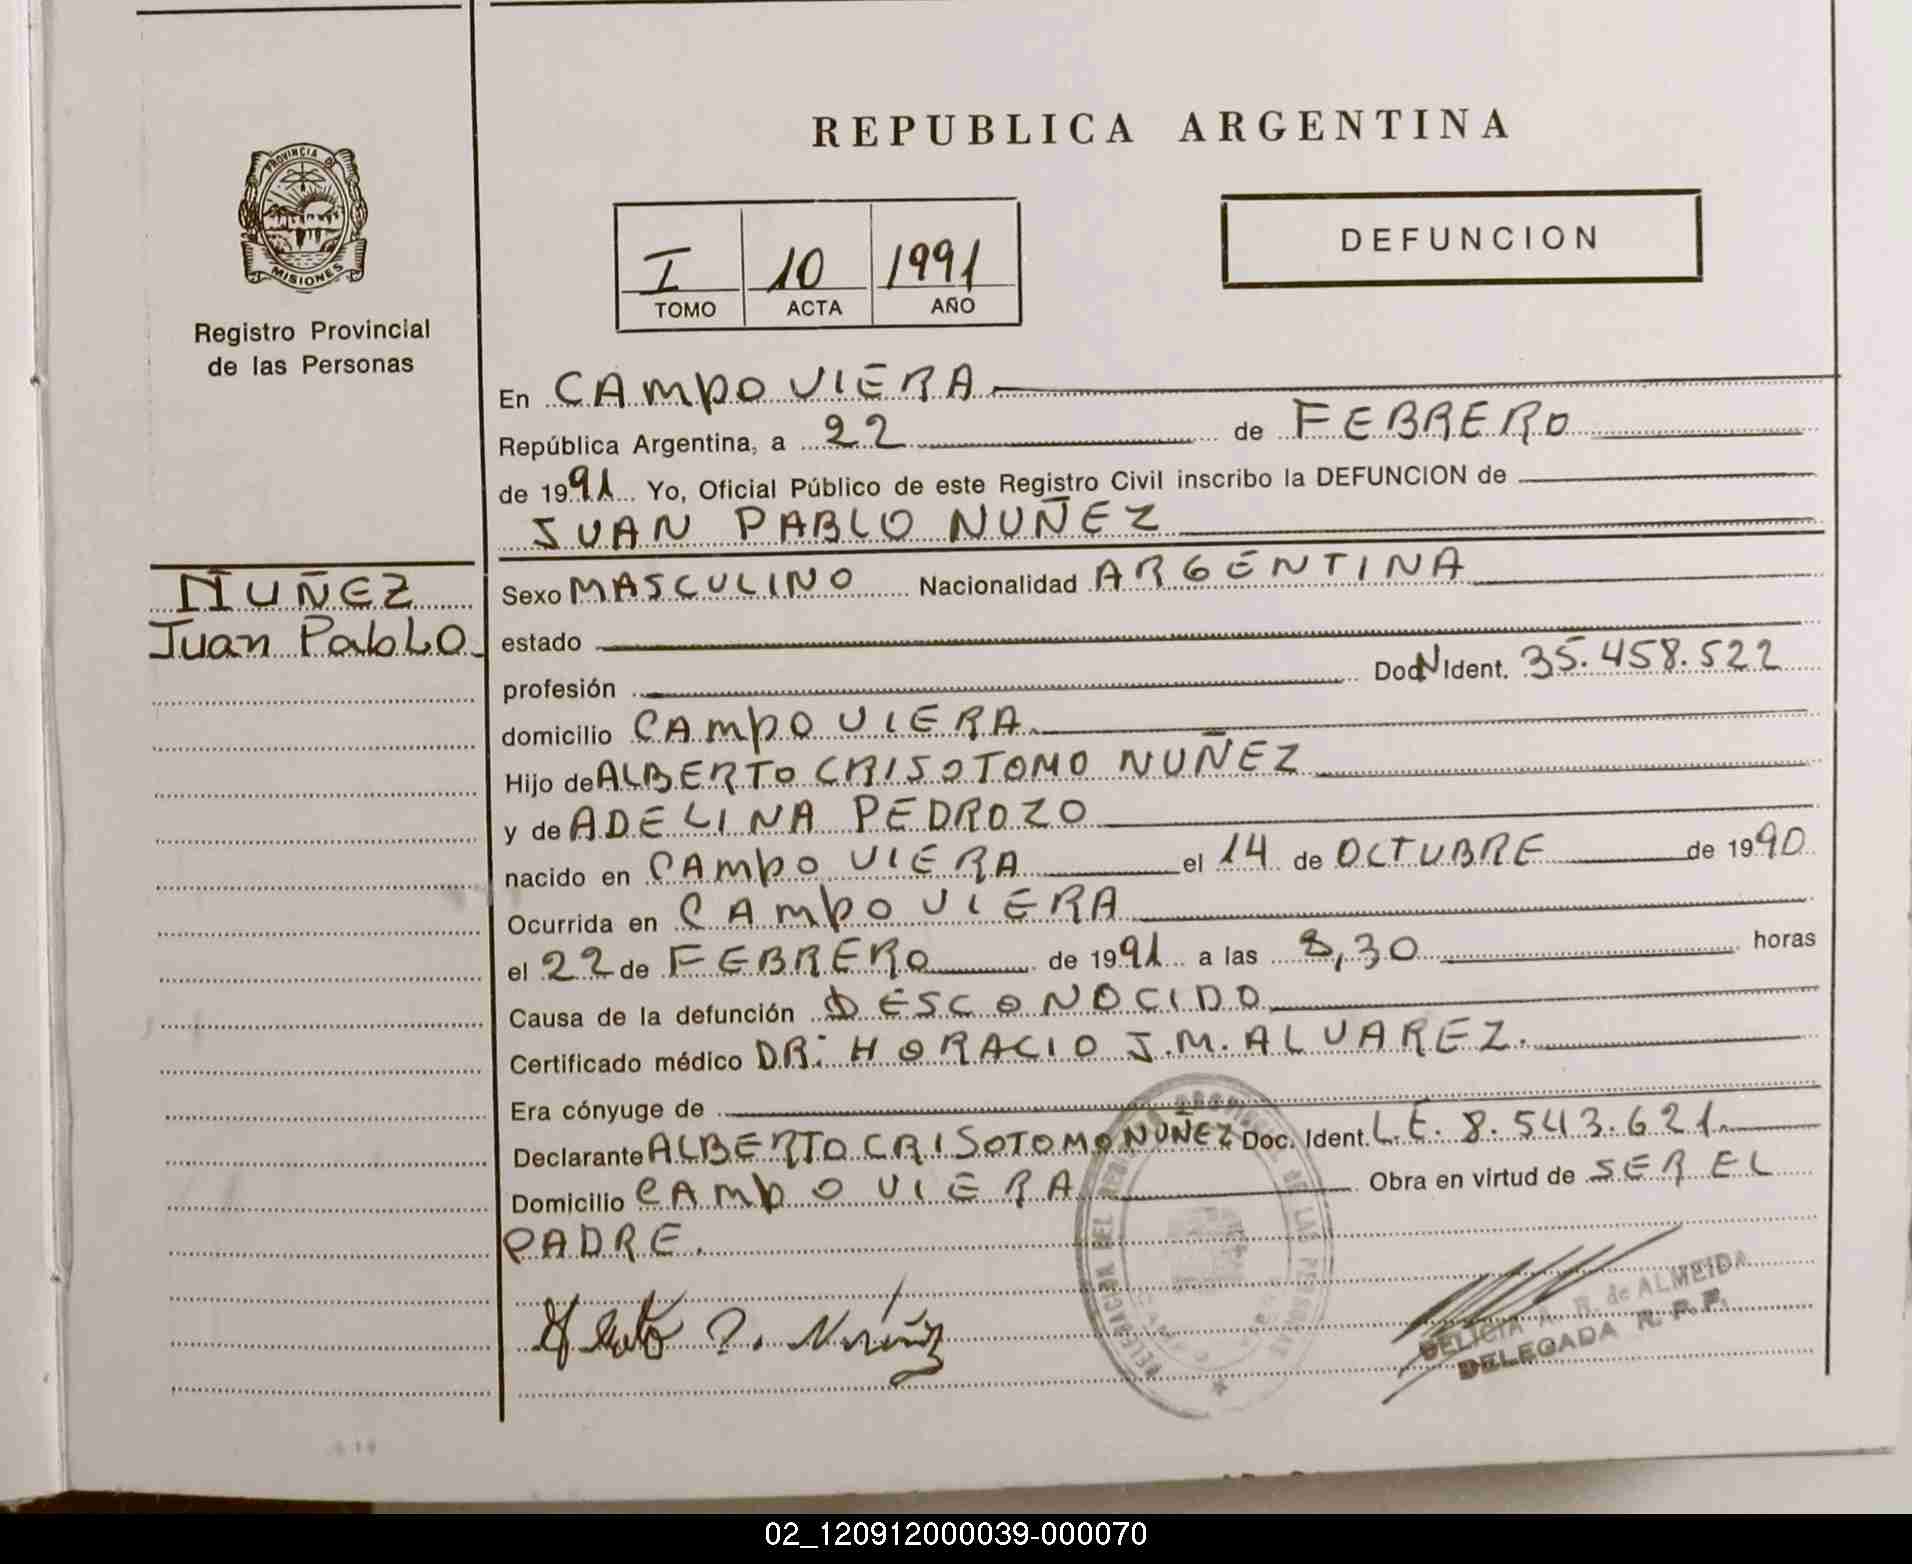 REPUBLICA ARGENTINA
PROVINCIA D
MISIONES
Registro Provincial
de las Personas
I 10 1991
TOMO ACTA AÑO
DEFUNCION
En CAMPO VIERA
República Argentina, a 22 de FEBRERO
de 1991 Yo, Oficial Público de este Registro Civil inscribo la DEFUNCION de
JUAN PABLO NUÑEZ
NUÑEZ
Juan Pablo
Sexo MASCULINO Nacionalidad ARGENTINA
estado
profesión Doc N Ident. 35.458.522
domicilio CAMPO VIERA
Hijo de ALBERTO CRISOTOMO NUÑEZ
y de ADELINA PEDROZO
nacido en CAMPO VIERA el 14 de OCTUBRE de 1990
Ocurrida en CAMPO VIERA
el 22 de FEBRERO de 1991 a las 8,30 horas
Causa de la defunción DESCONOCIDO
Certificado médico DR: HORACIO J.M. ALVAREZ.
Era cónyuge de
Declarante ALBERTO CRISOTOMO NUÑEZ Doc. Ident. L.E. 8.543.621.
Domicilio CAMPO VIERA Obra en virtud de SER EL
PADRE.
DELEGACION DEL REG PROVINCIAL DE LAS PERSONAS
Núñez
DELICIA A. R. de ALMEIDA
DELEGADA R. P. P.
02_120912000039-000070